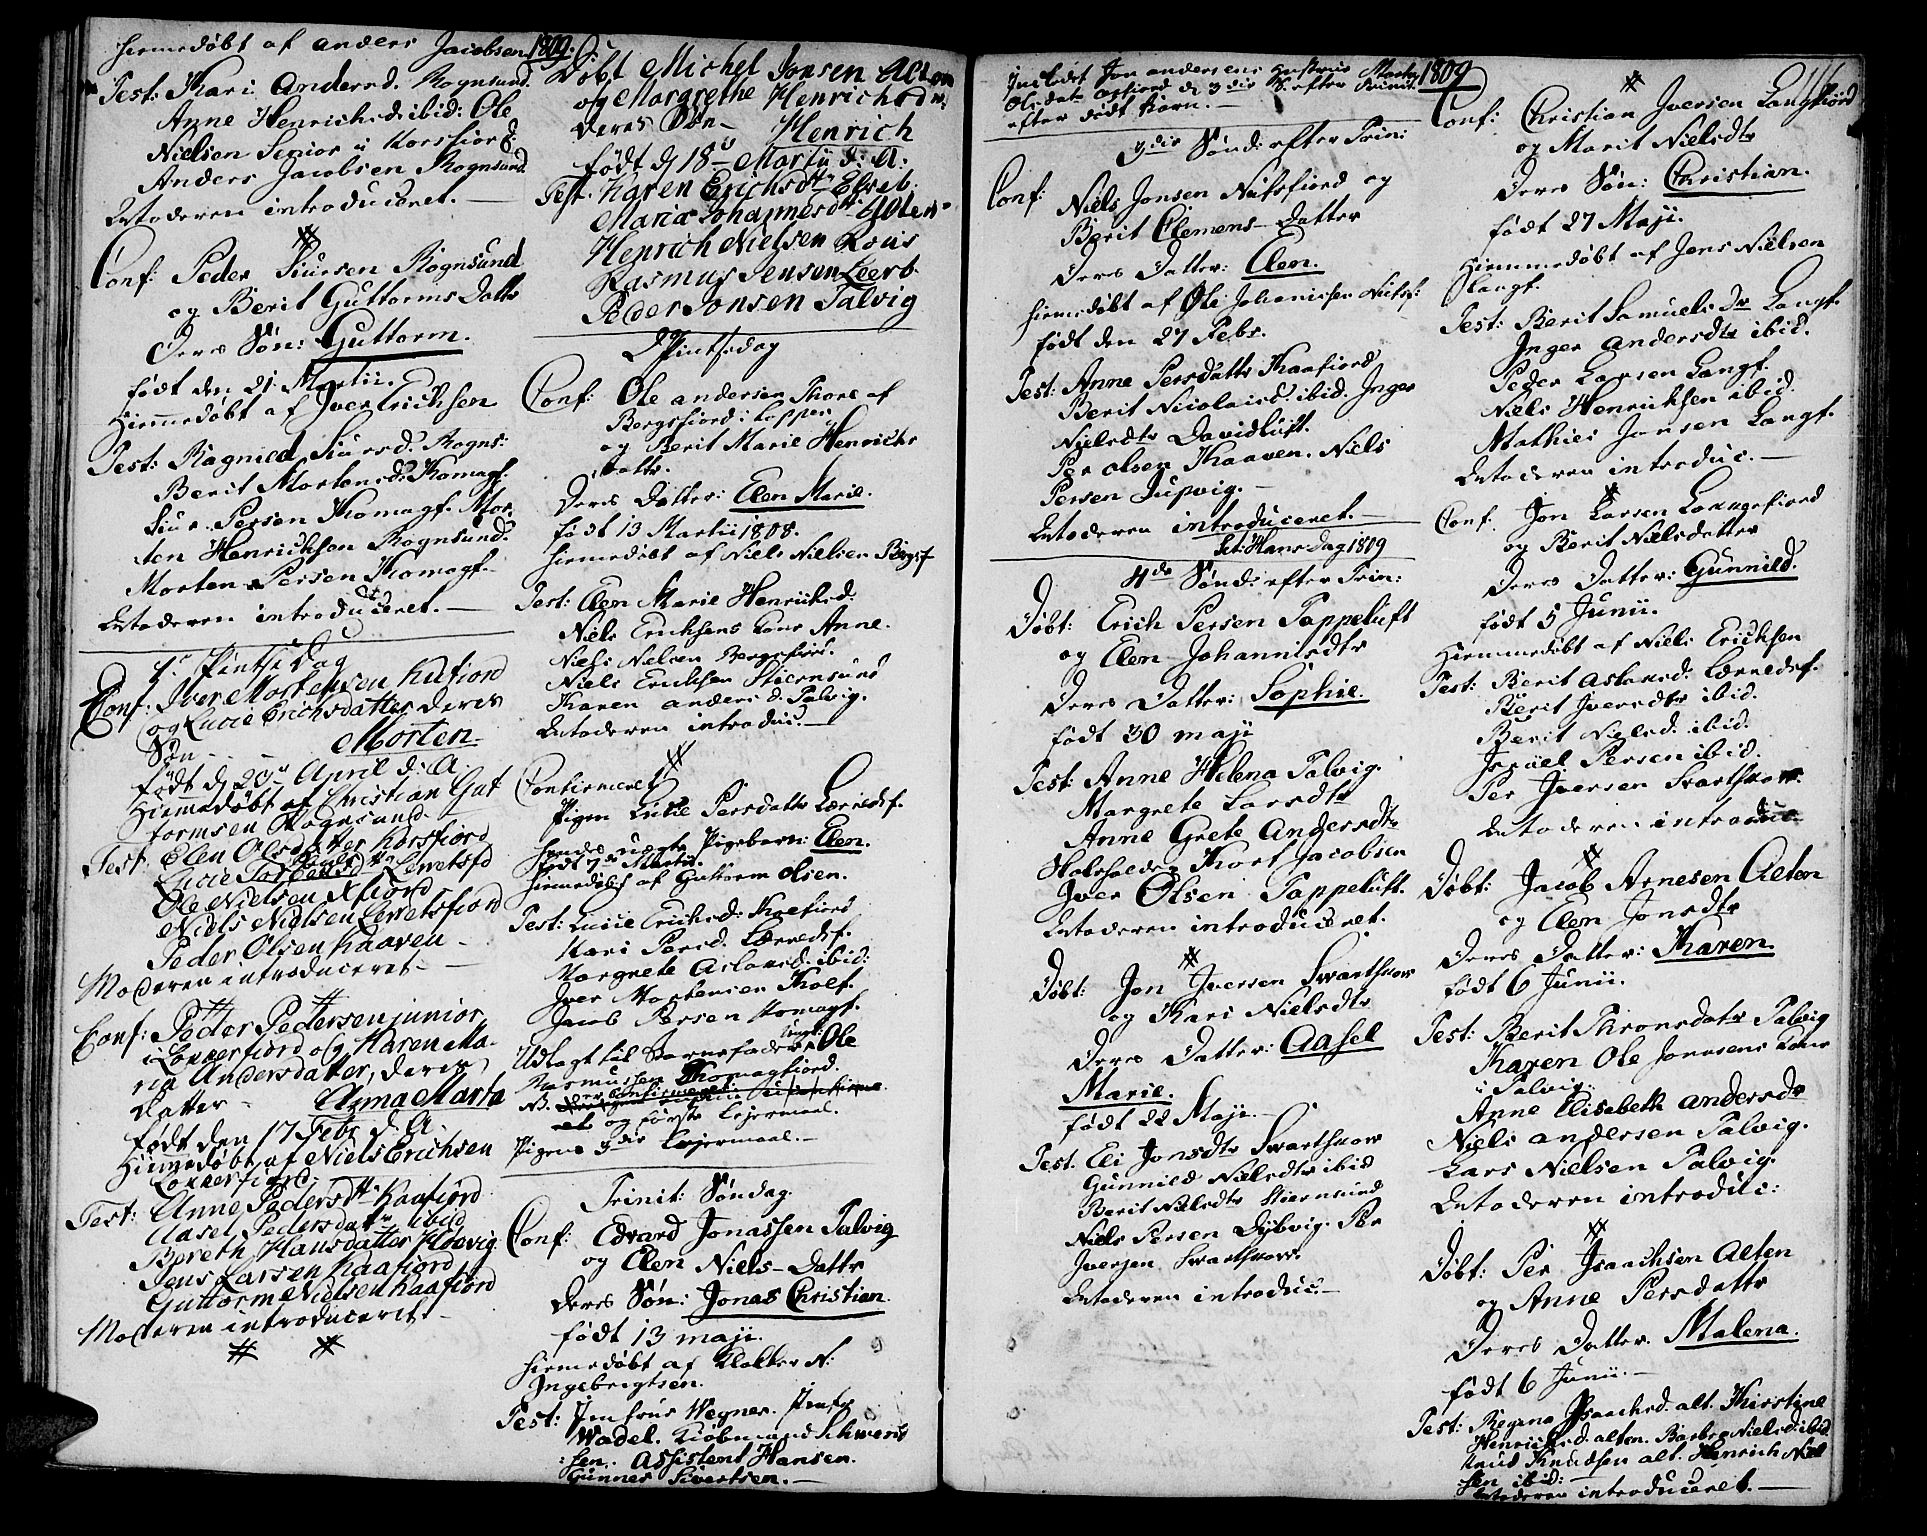 1809.
hiemedøbt af Anders Jacobsen
Test: Kari Andersd. Rognsund.
Anne Henrichsd: ibid: Ole
Nielsen Senior i Korsfiord
Anders Jacobsen Rognsund.
introduceret. —
Conf: Peder Siursen Rognsund
og Berit Guttorms Datter
Deres Søn: Guttorm.
født den 21. Martii.
Hiemmedøbt af Iver Erichsen
Test: Ragnild Siursd. Rogns:
Berit Mortensd: Komagf.
Siur Persen Komagf. Mor-
ten Henrichsen Rognsund.
Morten Persen Komagf.
introduceret. —
1ste Pintse Dag
Conf: Iver Mortensen Kufiord
og Lucie Erichsdatter deres
Søn - - Morten.
født d 20de April d: A:
Hiemedøbt af Christian Gut
tormsen Rognsund.
Test: Elen Olsdatter Korsfiord
Ole Nielsen
Niels Nielsen Lerretsfiord
Peder Olsen Kaaven -
Moderen introduceret -
Conf: Peder Pedersen junior,
i Lokkerfiord og Karen Ma-
ria Andersdatter, deres
datter - Anna Marta
født den 17 Febr d. A.
Hiemmedøbt af Niels Erichsen
Lokkerfiord.
Test: Anne Pedersdtr Kaafiord
Aasel Pedersdatr ibid
Bereth Hansdatter
Jens Larsen Kaafiord
Guttorm Nielsen Kaafiord
Moderen introduceret -
Døbt Michel Jonsen Alten
og Margrethe Henrichsdtr
deres Søn - Henrich
født d 18de Martii d: A:
Test: Karen Erichsdtr Elveb.
Maria Johannesdtr Alten
Henrich Nielsen
Rasmus Jensen Leerb.
Peder Jonsen Talvig
2 Pintsedag
Conf: Ole Andersen Thore af
Bergsfiord i Loppen
og Berit Marie Henrichs
datter.
Deres Datter: Elen Marie.
født 13 Martii 1808.
hiemedøbt af Niels Nielsen Bergsf
Test: Elen Marie Henrichsd:
Niels Erichsens Kone Anne.
Niels Nielsen Bergsfiord.
Niels Erichsen Stiernsund
Karen Andersd. Talvig.
introduc —
Confirmeret
Pigen Lucie Persdatter Lerredsf.
hendes uægte Pigebarn: Elen.
født 7de Martii.
hiemedøbt af Guttorm Olsen.
Test: Lucie Erichsd: Kaafiord
Kari Persd. Lerredsf.
Margrete Aslaksd: ibid:
Iver Mortensen
Jacob Persen Komagf.
Udlagt til Barnefader Ungk: Ole
Rasmussen Komagfiord.
NB.
og første Leiermaal.
Pigens 3die Leiermaal. —
Trinit: Søndag.
Conf: Edvard Jonassen Talvig
og Elen Niels-Datter
Deres Søn: Jonas Christian.
født 13 Maji.
hiemedøbt af Klokker N:
Ingebrigtsen.
Test: Jomfrue Wegner. Jomfr
Wadel. Kiøbmand Schwens
:sen. Assistent Hansen.
Gunner Sivertsen. —
1809
Jon Andersens Hustrue
efter født Barn. —
3die Sønd: efter Trin:
Conf: Niels Jonsen Nufsfiord og
Berit Clemens-Datter
Deres Datter: Elen.
hiemedøbt af Ole Johannesen
født den 27 Febr.
Test: Anne Persdatter Kaafiord
Berit Nicolaisd: ibid. Inger
Nielsdtr Davidluft.
Per Olsen Kaaven. Niels
Persen
introduceret. —
Sct: Hans Dag 1809
4de Sønd: efter Trin:
Døbt: Erich Persen Pappeluft
og Elen Johannisdtr
Deres Datter: Sophie.
født 30 Maji
Test: Anne Helena Talvig.
Margrete Larsdtr
Anne Grete Andersdtr
Kort Jacobsen
Iver Olsen Pappeluft.
introduceret.
Døbt: Jon Iversen Svartskow
og Kari Nielsdtr
Deres Datter: Aasel
Marie.
født 22 Maji. —
Test. Eli Jonsdtr Svartskow
Gunnild Nielsdtr ibid
Berit Nielsdtr Stiernsund
Niels Persen Dybvig. Per
Iversen Svartskow.
introduc. —
Conf: Christian Iversen Langfiord
og Marit Nielsdtr
Deres Søn: Christian.
født 27 Maji.
Hiemmedøbt af Jens Nielsen
Langf.
Test: Berit Samuelsdr Langf.
Inger Andersdtr ibid.
Peder Larsen Langf.
Niels Henrichsen ibid.
Mathies Jonsen Langf.
introduc. —
Conf: Jon Larsen
og Berit Nielsdatter
Deres Datter: Gunnild.
født 5 Junii.
Hiemmedøbt af Niels Erichsen
Test: Berit Aslaksd: Lerredsf.
Berit Iversdtr ibid.
Berit Nielsd: ibid.
Israel Persen ibid.
Per Iversen Svartskow.
introduc
Døbt: Jacob Arnesen Alten
og Elen Jonsdtr
Deres Datter: Karen.
født 6 Junii.
Test: Berit Thronsdatr Talvig
Karen Ole Jonnsens Kone
i Talvig.
Anne Elisabeth Andersdtr
Niels Andersen Talvig.
Lars Nielsen Talvig.
introduc:
Døbt: Per Isaachsen Alten
og Anne Persdatter
Deres Datter. Malena.
født 6 Junii. —
Test: Regina Isaachsd. Alt. Kirstine
Henrichsd. Alten. Barbro Nielsd: ibid.
Knud Knudsen Alt. Henrich Niel
sen ibid:
introduceret. —